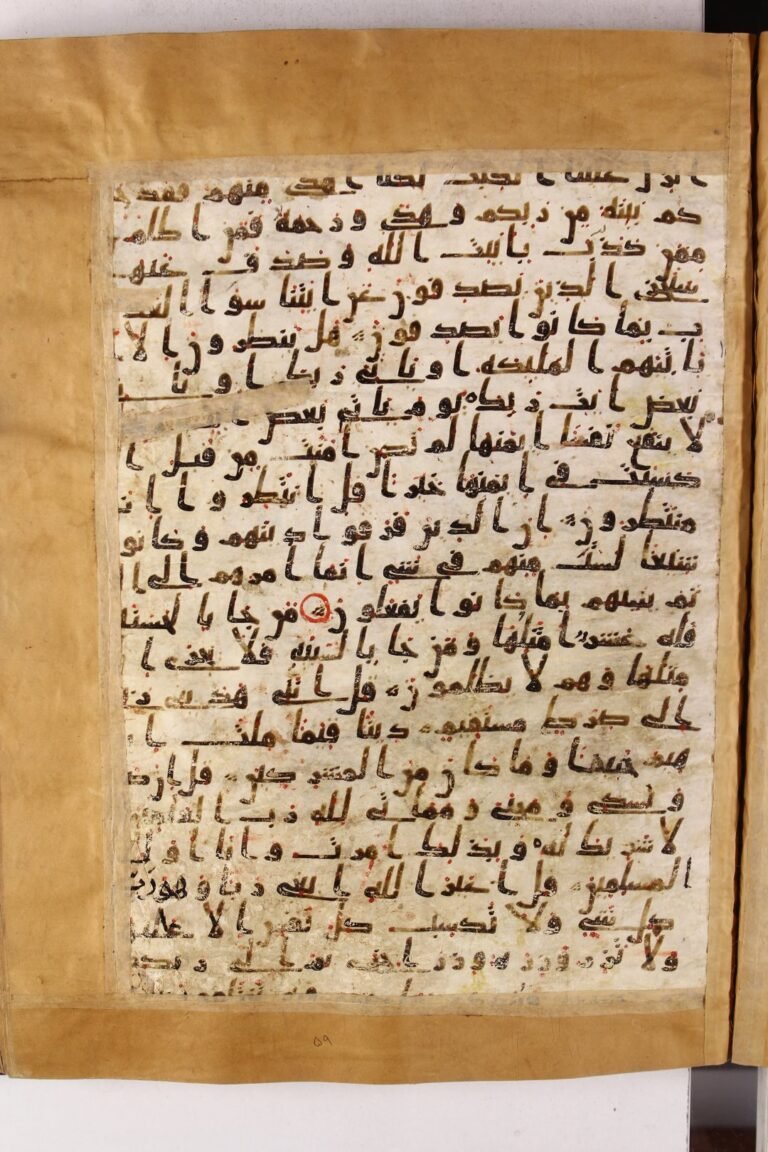 علينا الكتب لكنا اهدى منهم فقد جا
كم بينه من ربكم وهدى ورحمه فمن اظلم
ممن كذب بايت الله وصدف عنها
سنجزى الذين يصدفون عن ايتنا سوا العذا
ب بما كانوا يصدفون هل ينظرون الا
تاتيهم الملئكه او ياتى ربك او يا
بعض ايت ربك يوم ياتى بعض ا
لا ينفع نفسا ايمنها لم تكن امنت من قبل ا
كسبت فى ايمنها خيرا قل انتظروا ا
منتظرون ان الذين فرقوا دينهم وكانوا
شيعا لست منهم فى شى انما امرهم الى ا
ثم ينبئهم بما كانوا يفعلون من جا بالحسنه
فله عشر امثلها ومن جا بالسيئه فلا يجزى ا
مثلها وهم لا يظلمون قل اننى هدينى ربى
الى صرط مستقيم دينا قيما ملت ا
هيم حنيفا وما كان من المشركين قل ان صلا
ونسكى ومحيى ومماتى لله رب العلمين
لا شريك له وبذلك امرت وانا اول
المسلمين قل اغير الله ابغى ربا وهو رب
كل شى ولا تكسب كل نفس الا عليها
ولا تزر وزره وزر اخرى ثم الى ربكم
٥٩